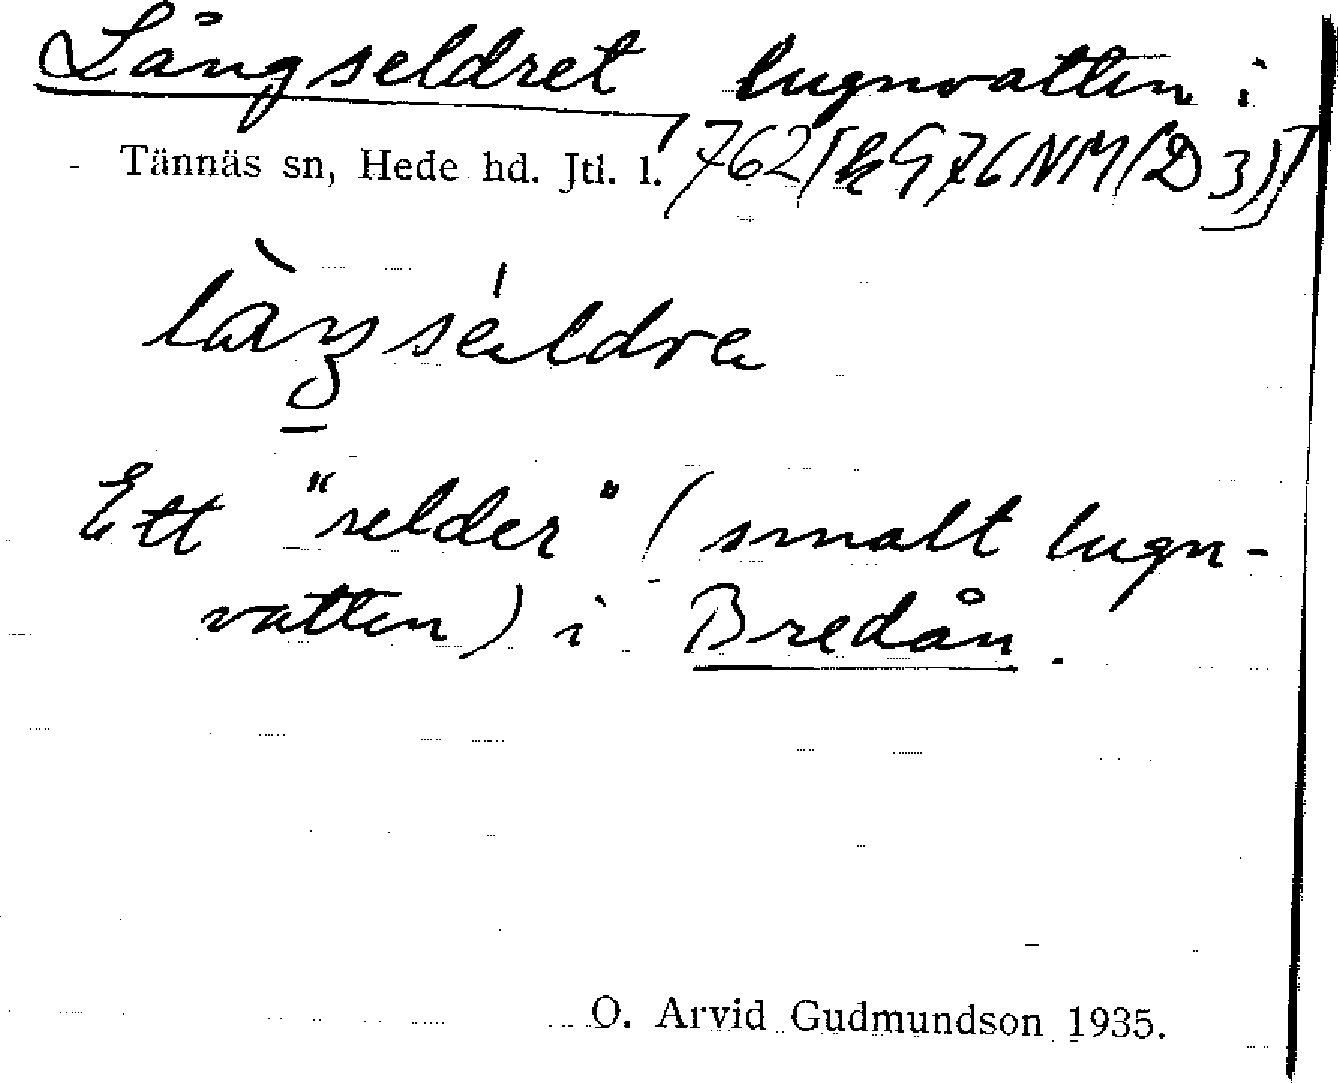 Långseldret lugnvatten i
Tännäs sn, Hede hd. Jtl. l.
Ett "selder" (smalt lugn-
vatten) i Bredån.
O. Arvid Gudmundson 1935.